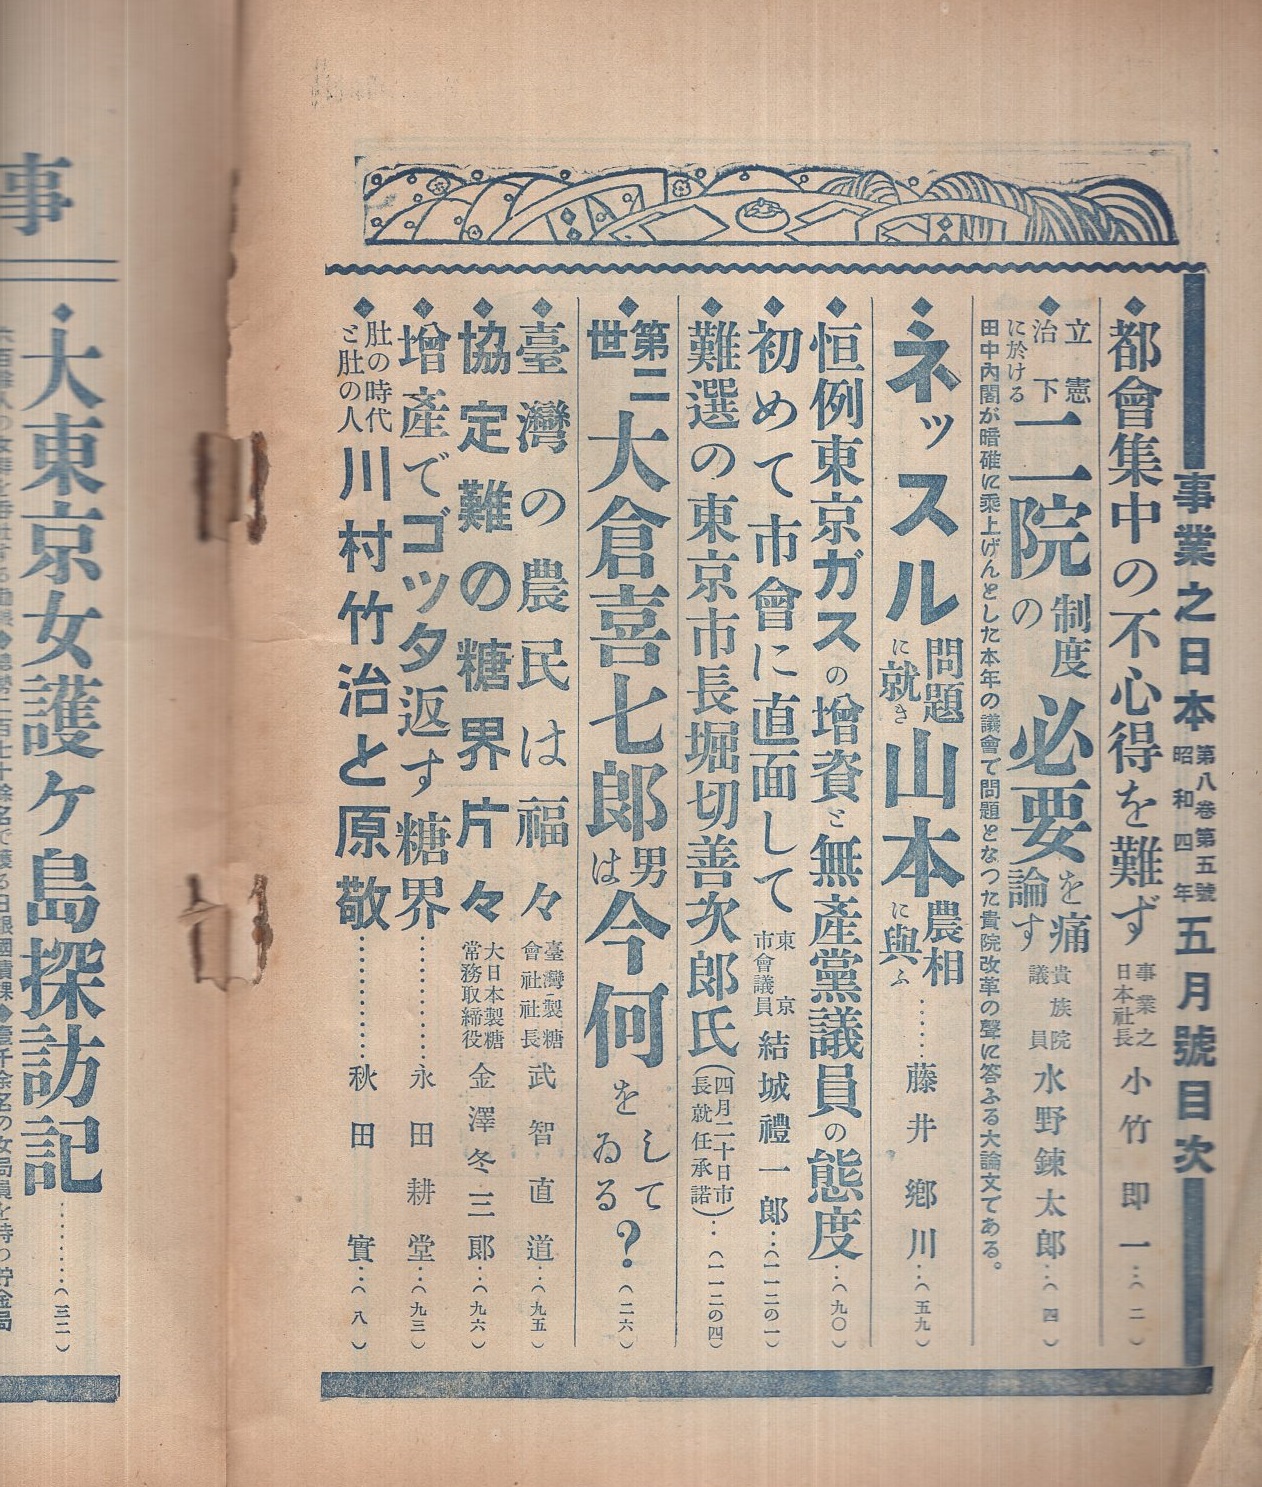 事業之日本 第八卷第五號 昭和四年 五月號目次
◆都會集中の不心得を難ず 事業之日本社長 小竹即一…(二)
◆立憲治下に於ける二院制度の必要を痛論す 貴族院議員 水野錬太郎…(四)
田中內閣が暗礁に乘上げんとした本年の議會で問題となつた貴院改革の聲に答ふる大論文である。
◆ネッスル問題に就き山本農相に與ふ……藤井鄕川…(五九)
◆恒例東京ガスの增資と無產黨議員の態度…(九〇)
◆初めて市會に直面して 東京市會議員 結城禮一郎…(一一二の一)
◆難選の東京市長堀切善次郎氏(四月二十日市長就任承諾)…(一一二の四)
◆第二世大倉喜七郎男は今何をしてゐる?(二六)
◆臺灣の農民は福々 臺灣製糖會社社長 武智直道…(九五)
◆協定難の糖界片々 大日本製糖常務取締役 金澤冬三郎…(九六)
◆增產でゴツタ返す糖界…………永田耕堂…(九三)
◆肚の時代と肚の人 川村竹治と原敬…………秋田實…(八)
事
◆大東京女護ケ島探訪記………(三二)